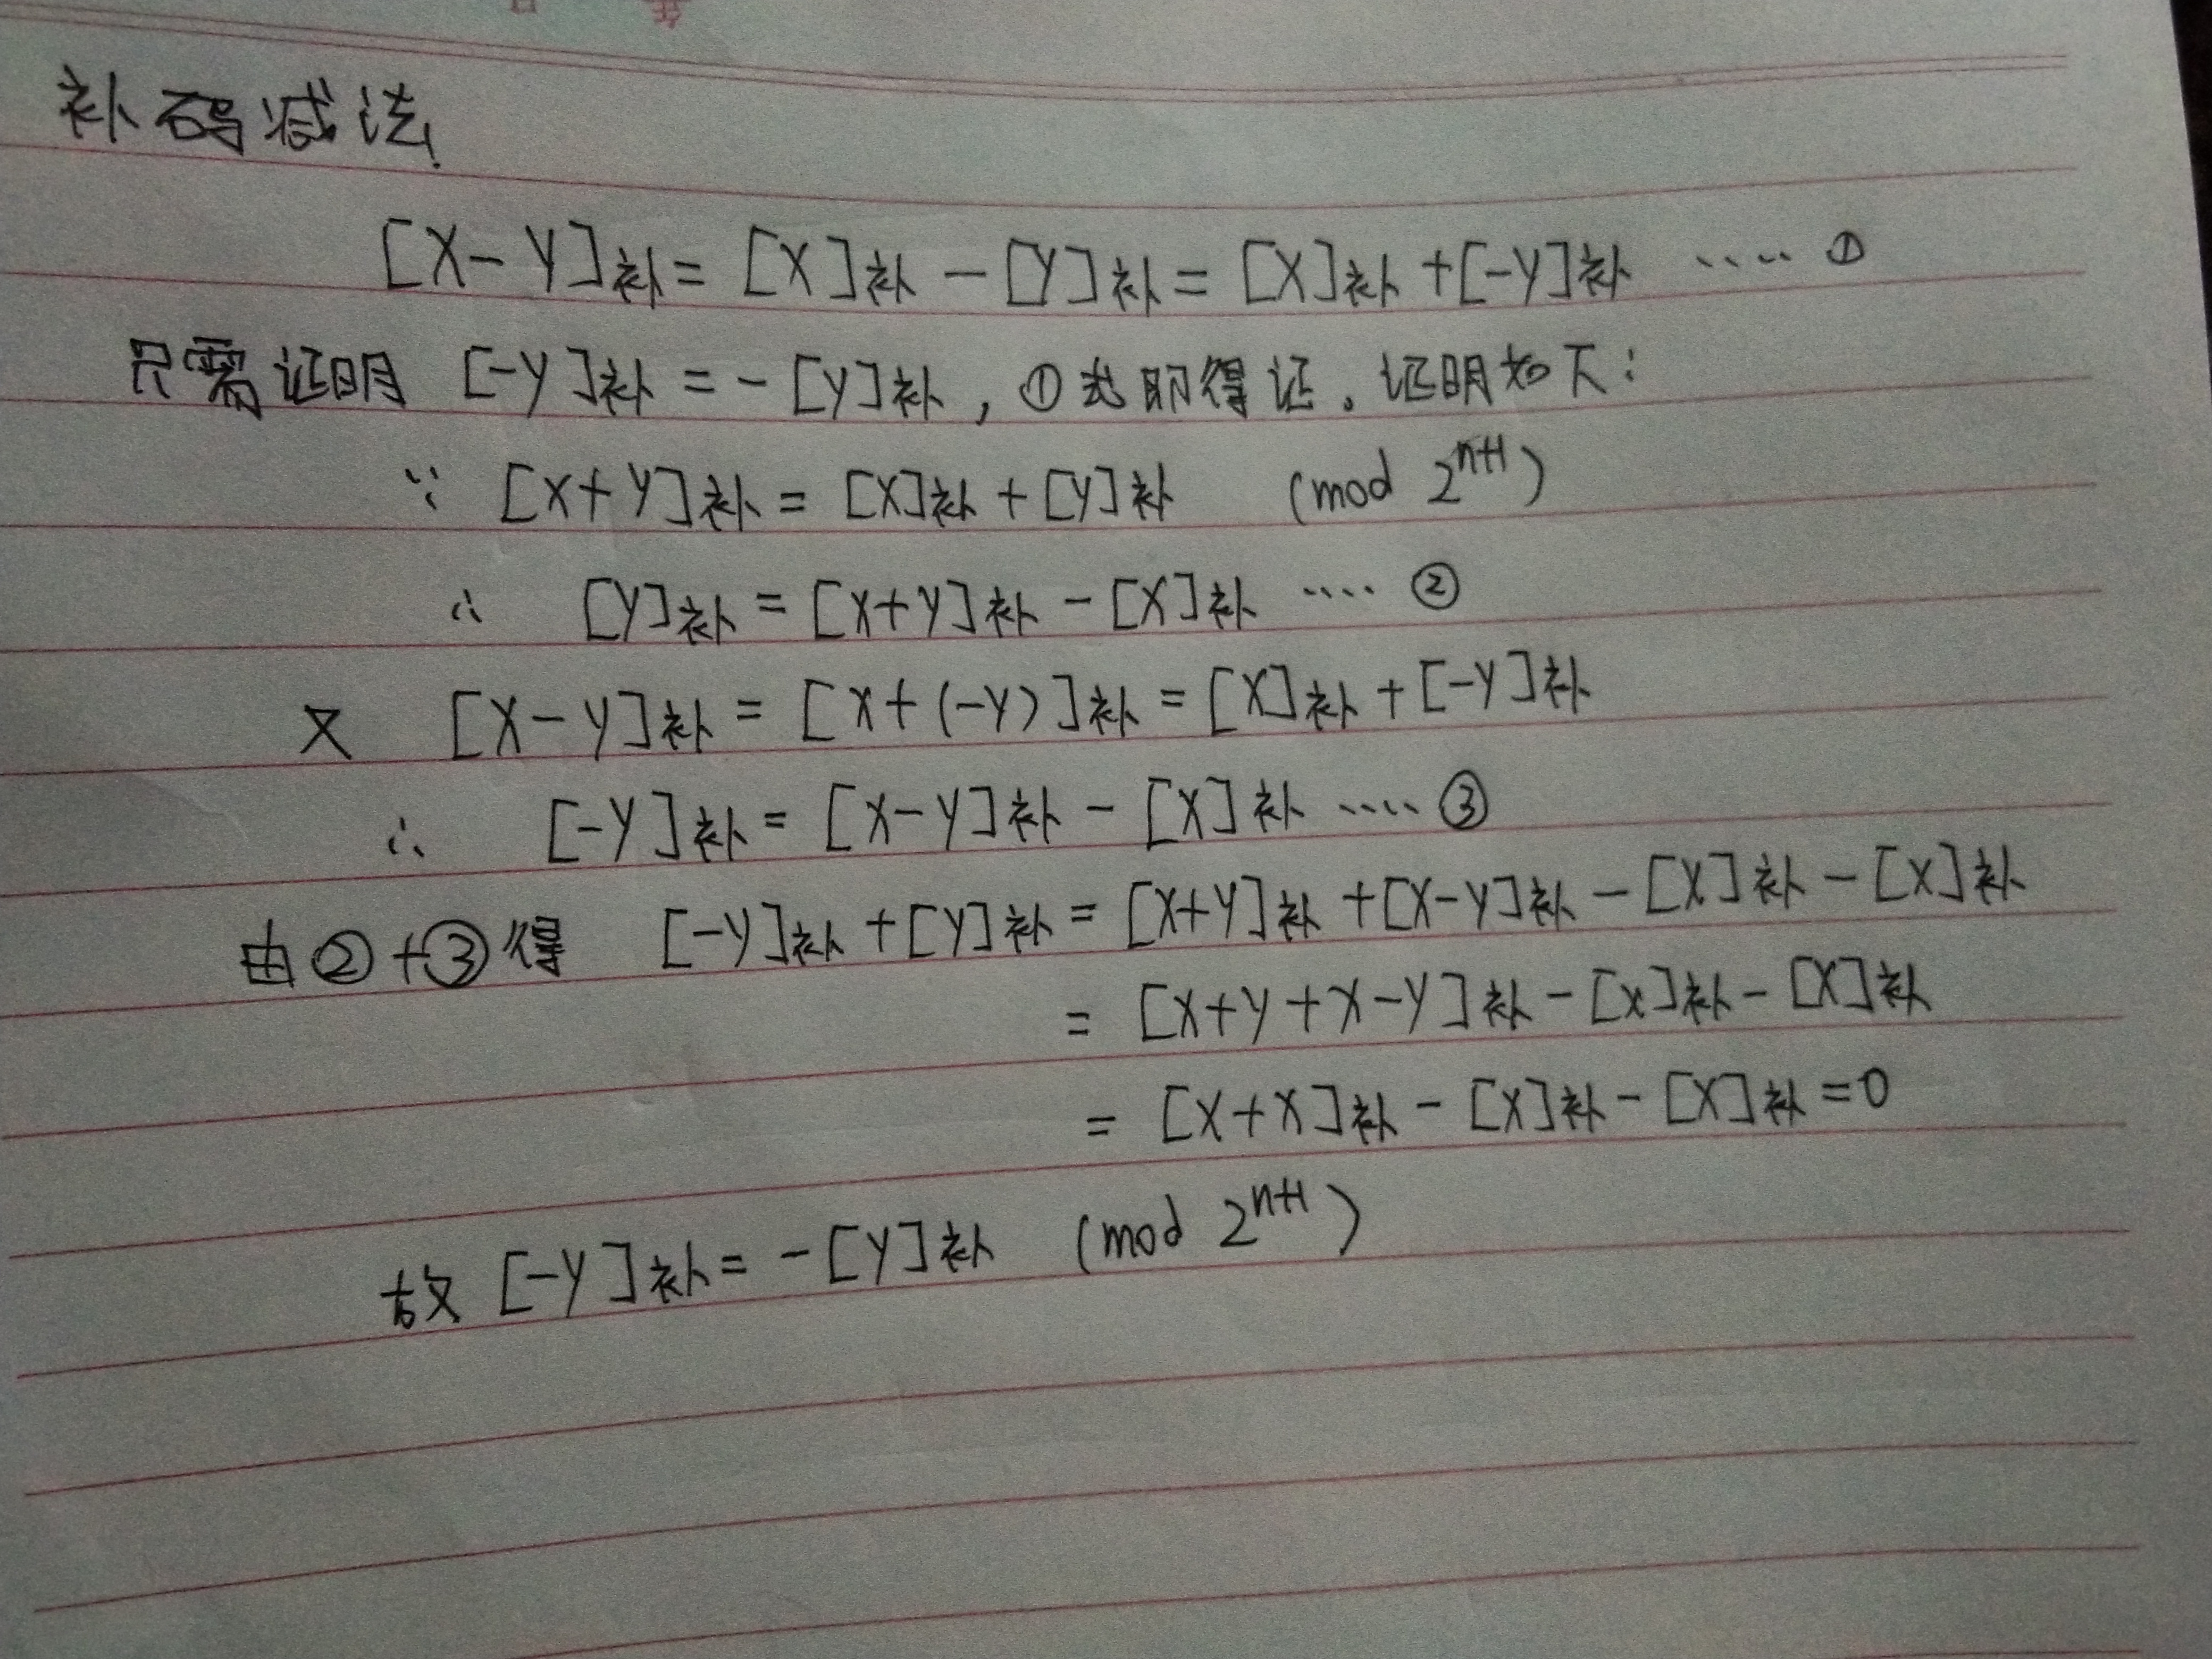 补码减法
[X-Y]补=[X]补-[Y]补=[X]补+[-Y]补 ····①
只需证明 [-Y]补=-[Y]补,①式即得证。证明如下:
∵ [X+Y]补=[X]补+[Y]补 (mod 2^{n+1})
∴ [Y]补=[X+Y]补-[X]补 ····②
又 [X-Y]补=[X+(-Y)]补=[X]补+[-Y]补
∴ [-Y]补=[X-Y]补-[X]补 ····③
由②+③得 [-Y]补+[Y]补=[X+Y]补+[X-Y]补-[X]补-[X]补
=[X+Y+X-Y]补-[X]补-[X]补
=[X+X]补-[X]补-[X]补=0
故 [-Y]补=-[Y]补 (mod 2^{n+1})